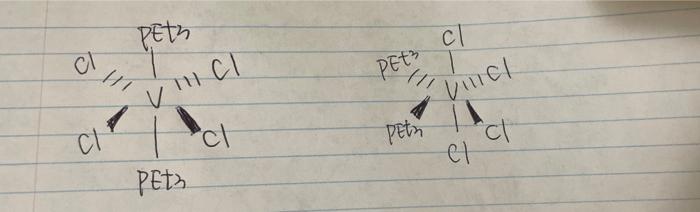 PEt3
Cl Cl
V
Cl Cl
PEt3
Cl
PEt3 Cl
V
PEt3 Cl
Cl